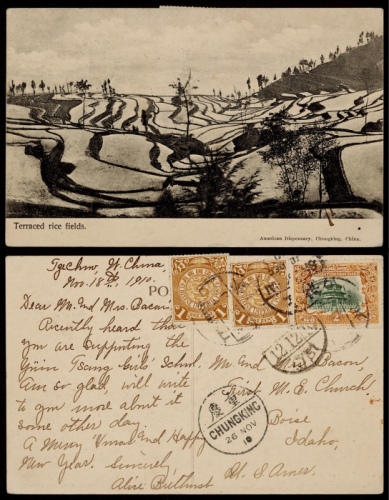 Terraced rice fields.
American Dispensary, Chungking, China.
Tzechow, W. China,
Nov. 18th, 1910.
PO
Dear Mr. and Mrs. Bacon,
Recently heard that
you are supporting the
Tsung Girls' School.
Am so glad, will write
to you more about it
some other day.
A Merry Xmas and Happy
New Year. Sincerely,
Alice
Mr. and Mrs. Bacon,
First M. E. Church
Boise
Idaho,
U. S. Amer.
1
1
CHUNGKING
26 NOV
10